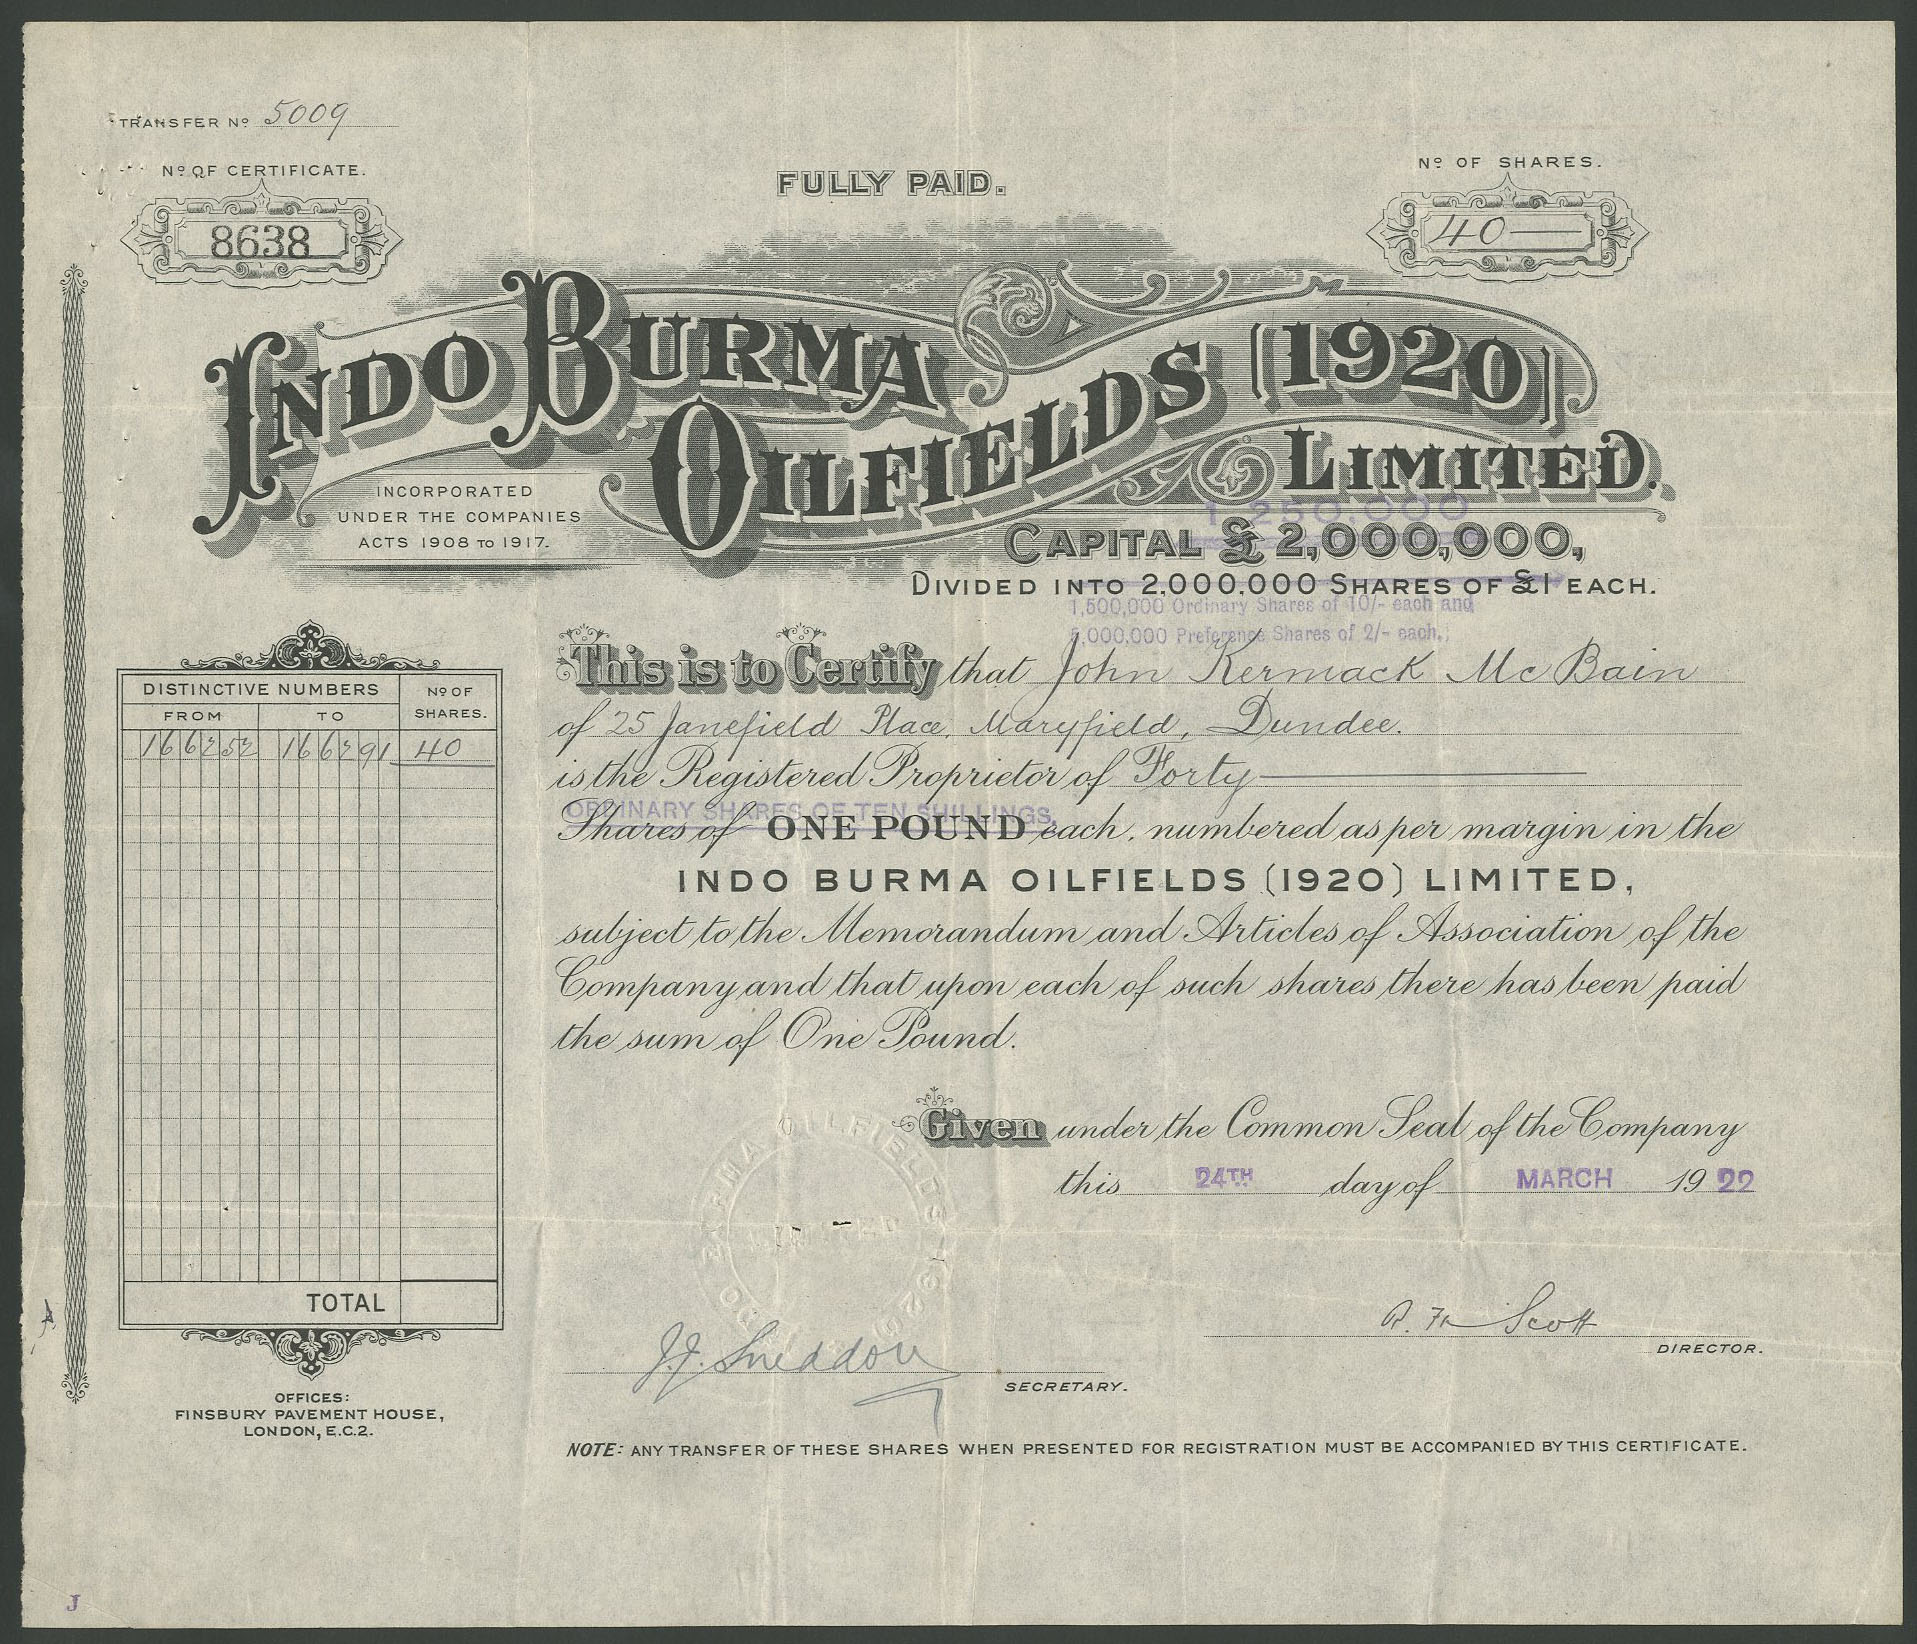 TRANSFER Nº 5009
Nº OF CERTIFICATE.
8638
FULLY PAID.
Nº OF SHARES.
40
INDO BURMA OILFIELDS (1920) LIMITED.
INCORPORATED
UNDER THE COMPANIES
ACTS 1908 TO 1917.
1,250,000
CAPITAL £2,000,000,
DIVIDED INTO 2,000,000 SHARES OF £1 EACH.
1,500,000 Ordinary Shares of 10/- each and
5,000,000 Preference Shares of 2/- each.
This is to Certify that John Kermack McBain
of 25 Janefield Place, Maryfield, Dundee.
is the Registered Proprietor of Forty
ORDINARY SHARES OF TEN SHILLINGS
Shares of ONE POUND each, numbered as per margin in the
INDO BURMA OILFIELDS (1920) LIMITED,
subject to the Memorandum and Articles of Association of the
Company and that upon each of such shares there has been paid
the sum of One Pound.
Given under the Common Seal of the Company
this 24TH day of MARCH 1922
DISTINCTIVE NUMBERS
Nº OF SHARES.
FROM TO
166252 166291 40
TOTAL
OFFICES:
FINSBURY PAVEMENT HOUSE,
LONDON, E.C.2.
OILFIELDS 1920
LIMITED
J.J. Sneddon
SECRETARY.
Scott
DIRECTOR.
NOTE: ANY TRANSFER OF THESE SHARES WHEN PRESENTED FOR REGISTRATION MUST BE ACCOMPANIED BY THIS CERTIFICATE.
J